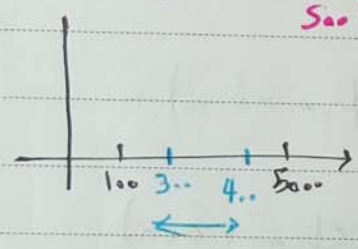 500
100 300 400 5000